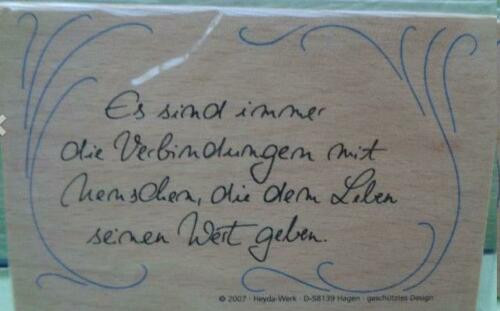 Es sind immer
die Verbindungen mit
Menschen, die dem Leben
seinen Wert geben.
© 2007 · Heyda-Werk · D-58139 Hagen · geschütztes Design